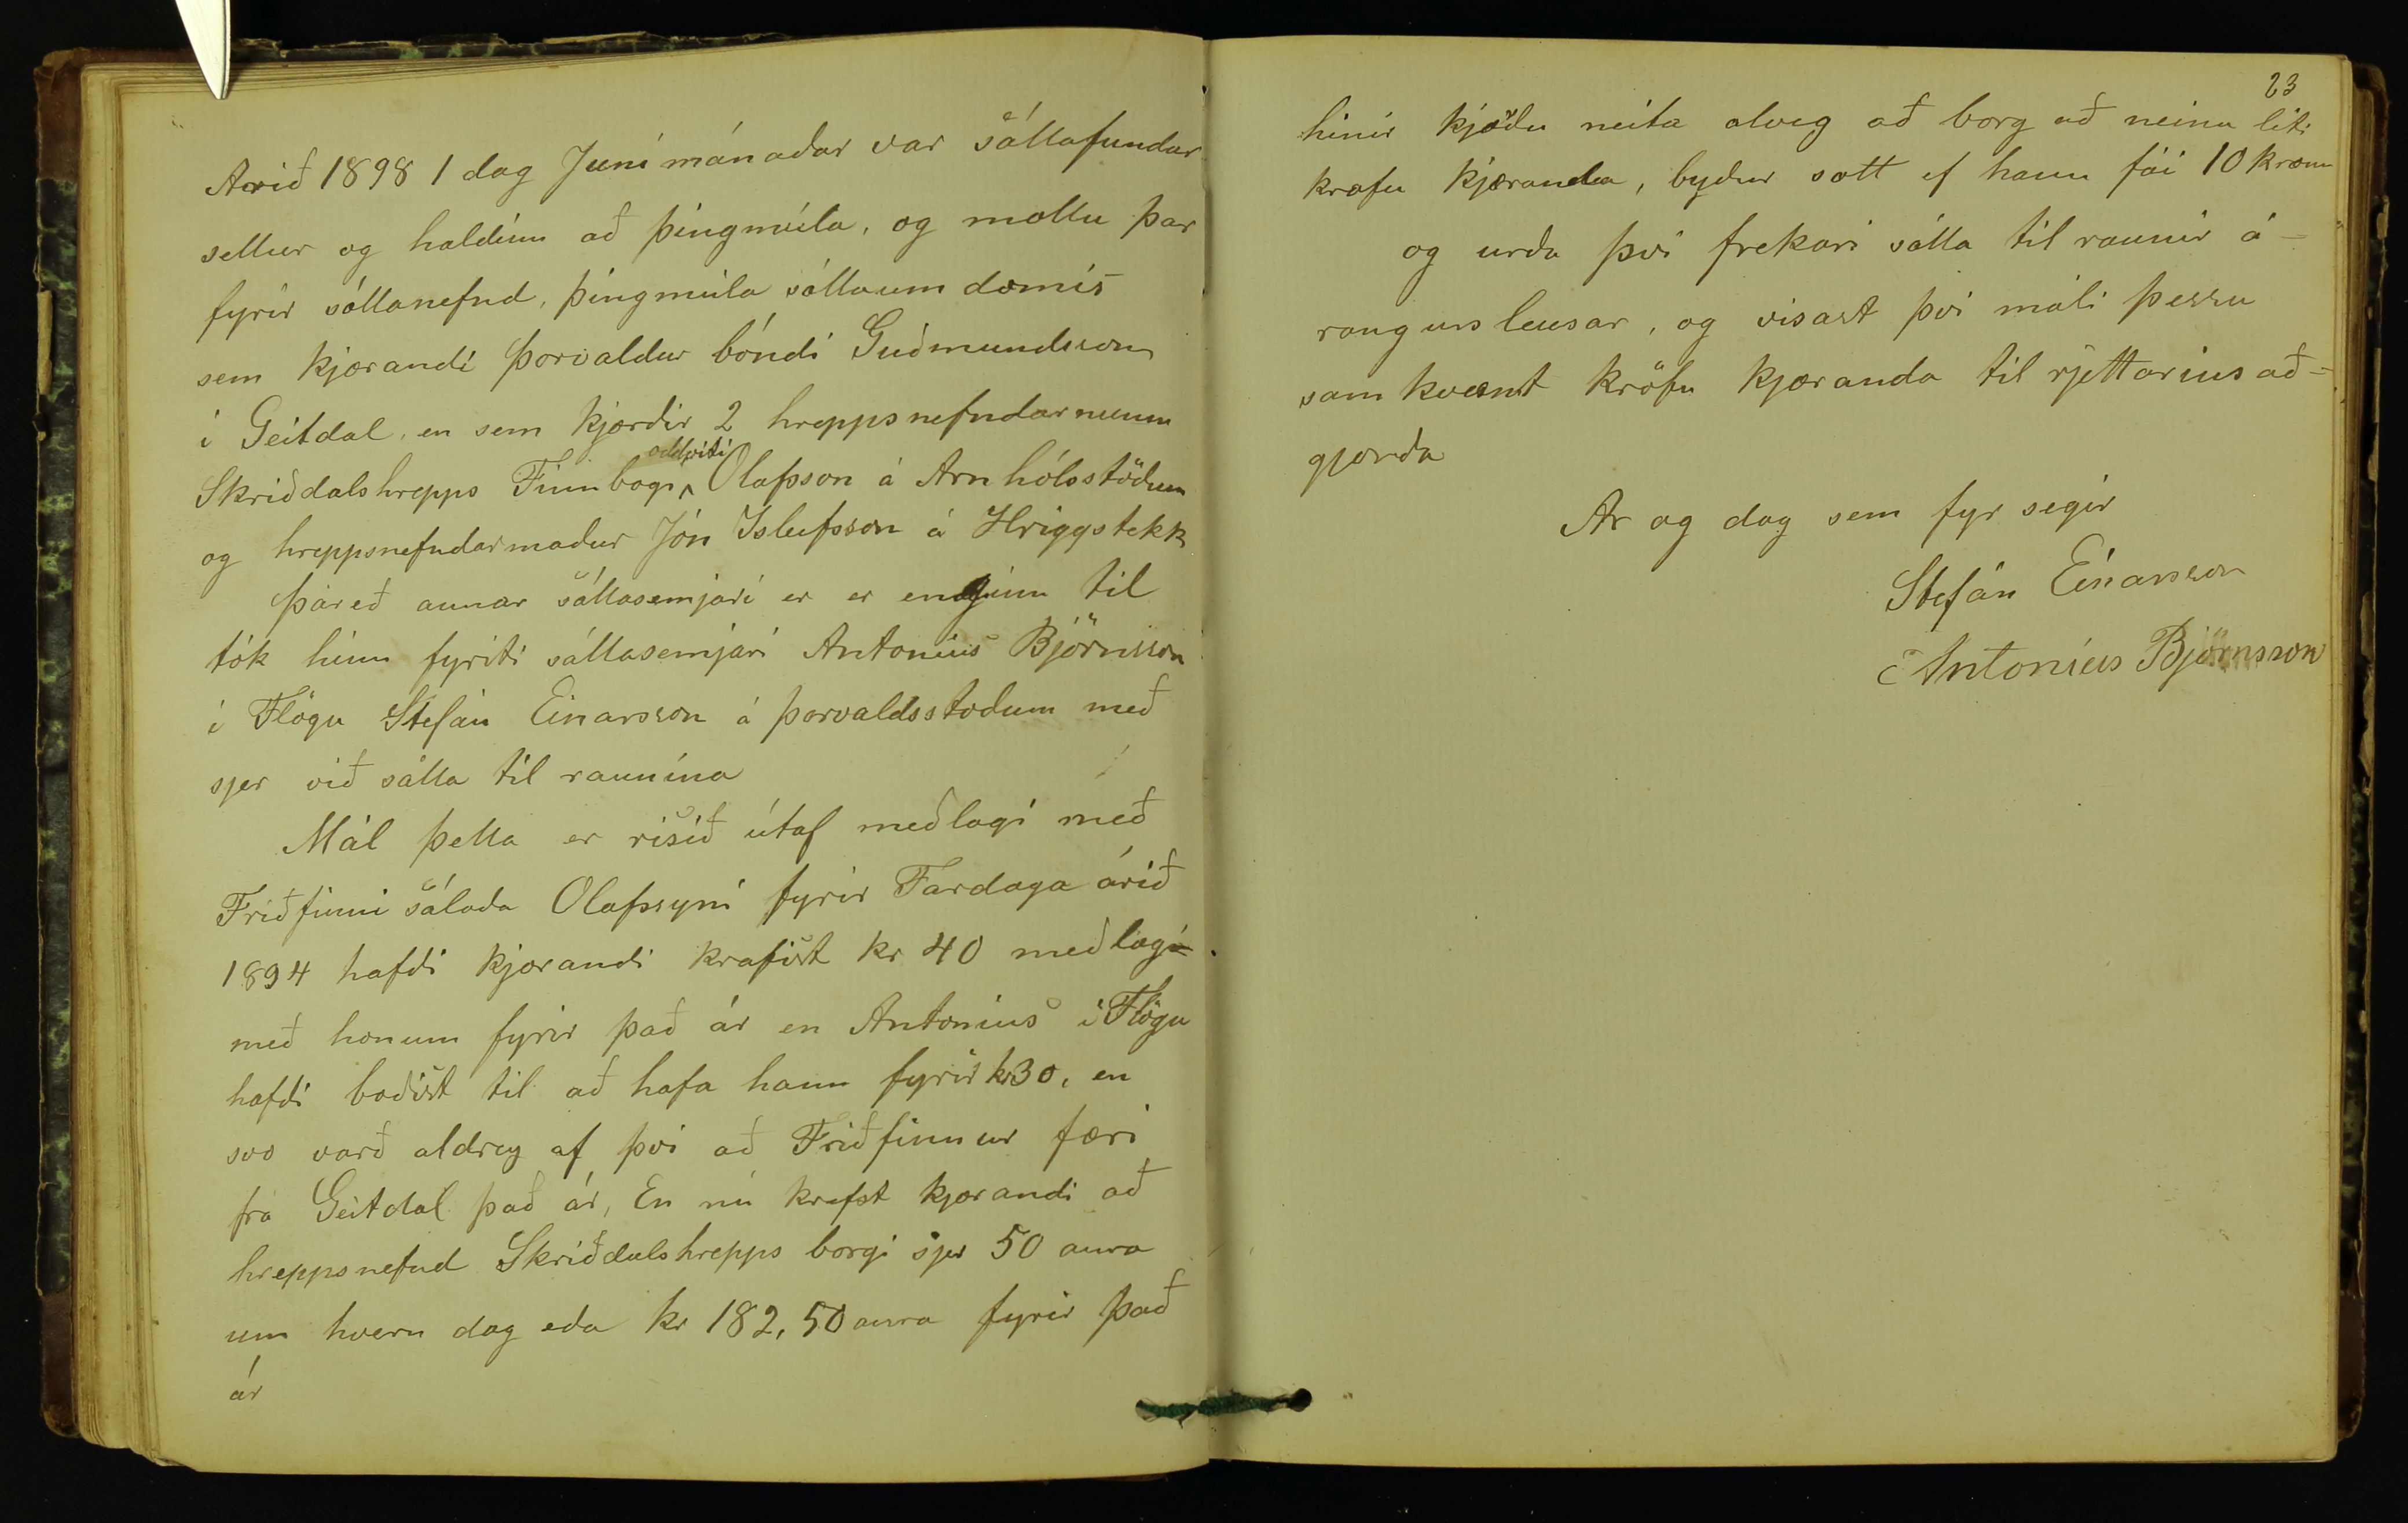 Arið 1898 1 dag Juni mánaðar var sáttafundur
settur og haldinn að þingmúla, og mættu þar
fyrir sáttanefnd, þingmúla sáttaumdæmis
sem kjærandi Þorvaldur bóndi Guðmundsson
i Geitdal, en sem kjærdir 2 hreppsnefndarmenn
Skriðdalshrepps Finnbogi oddviti Olafsson á Arnhólsstöðum
og hreppsnefndarmadur Jón Isleifsson á Hriggstekk
þareð annar sáttasemjari er er enginn til
tók hinn fyriti sáttasemjari Antonius Björnsson
i Flögu Stefán Einarsson á þorvaldsstodum með
sjer við sátta til raunina
Mál þetta er risið útaf meðlagi með
Friðfinni sáloda Olafssyni fyrir Fardaga árið
1894 hafdi kjærandi krafist kr 40 meðlagi
með honum fyrir það ár en Antonius i Flögu
hafdi boðist til að hafa hann fyrir kr30, en
svo varð aldrey af þvi að Friðfinnur færi
frá Geitdal það ár, En nú krefst kjærandi að
hreppsnefnd Skriðdalshrepps borgi sjer 50 aura
um hvern dag eda kr 182,50 aura fyrir það
ár
23
hinir kjærdu neita alveg að borg að neinu liti
kræfu kjæranda, byður sætt ef hann fái 10 kronu
og urdu þvi frekari sátta til raunir á-
rangurs leusar, og visast þvi máli þessu
samkvæmt kröfu kjæranda til rjettarins að=
gjorda
Ar og dag sem fyr segir
Stefán Einarsson
Antoníus Björnsson